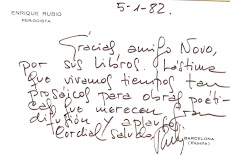 ENRIQUE RUBIO
PERIODISTA
5-1-82.
Gracias, amigo Novo,
por sus libros. Lástima
que vivamos tiempos tan
prosáicos para obras poéti-
cas que merecen tan
difusión y aplauso.
Cordial saludo,
BARCELONA
(España)